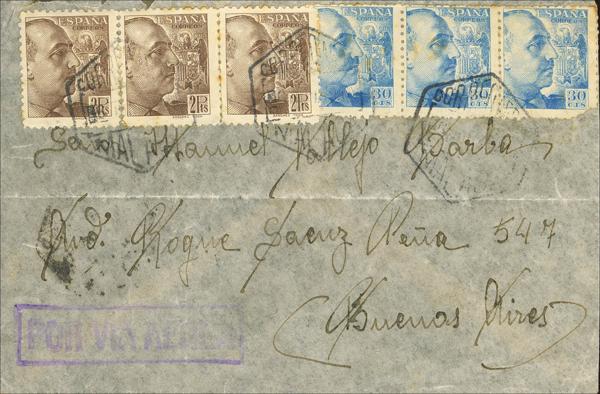 ESPAÑA ESPAÑA ESPAÑA ESPAÑA ESPAÑA ESPAÑA
CORREOS CORREOS CORREOS CORREOS CORREOS CORREOS
2 Pts 2 Pts 2 Pts 30 CTS 30 CTS 30 CTS
Manuel Vallejo Barba
Avd. Roque Saenz Peña 547
(Buenos Aires)
POR VIA AEREA